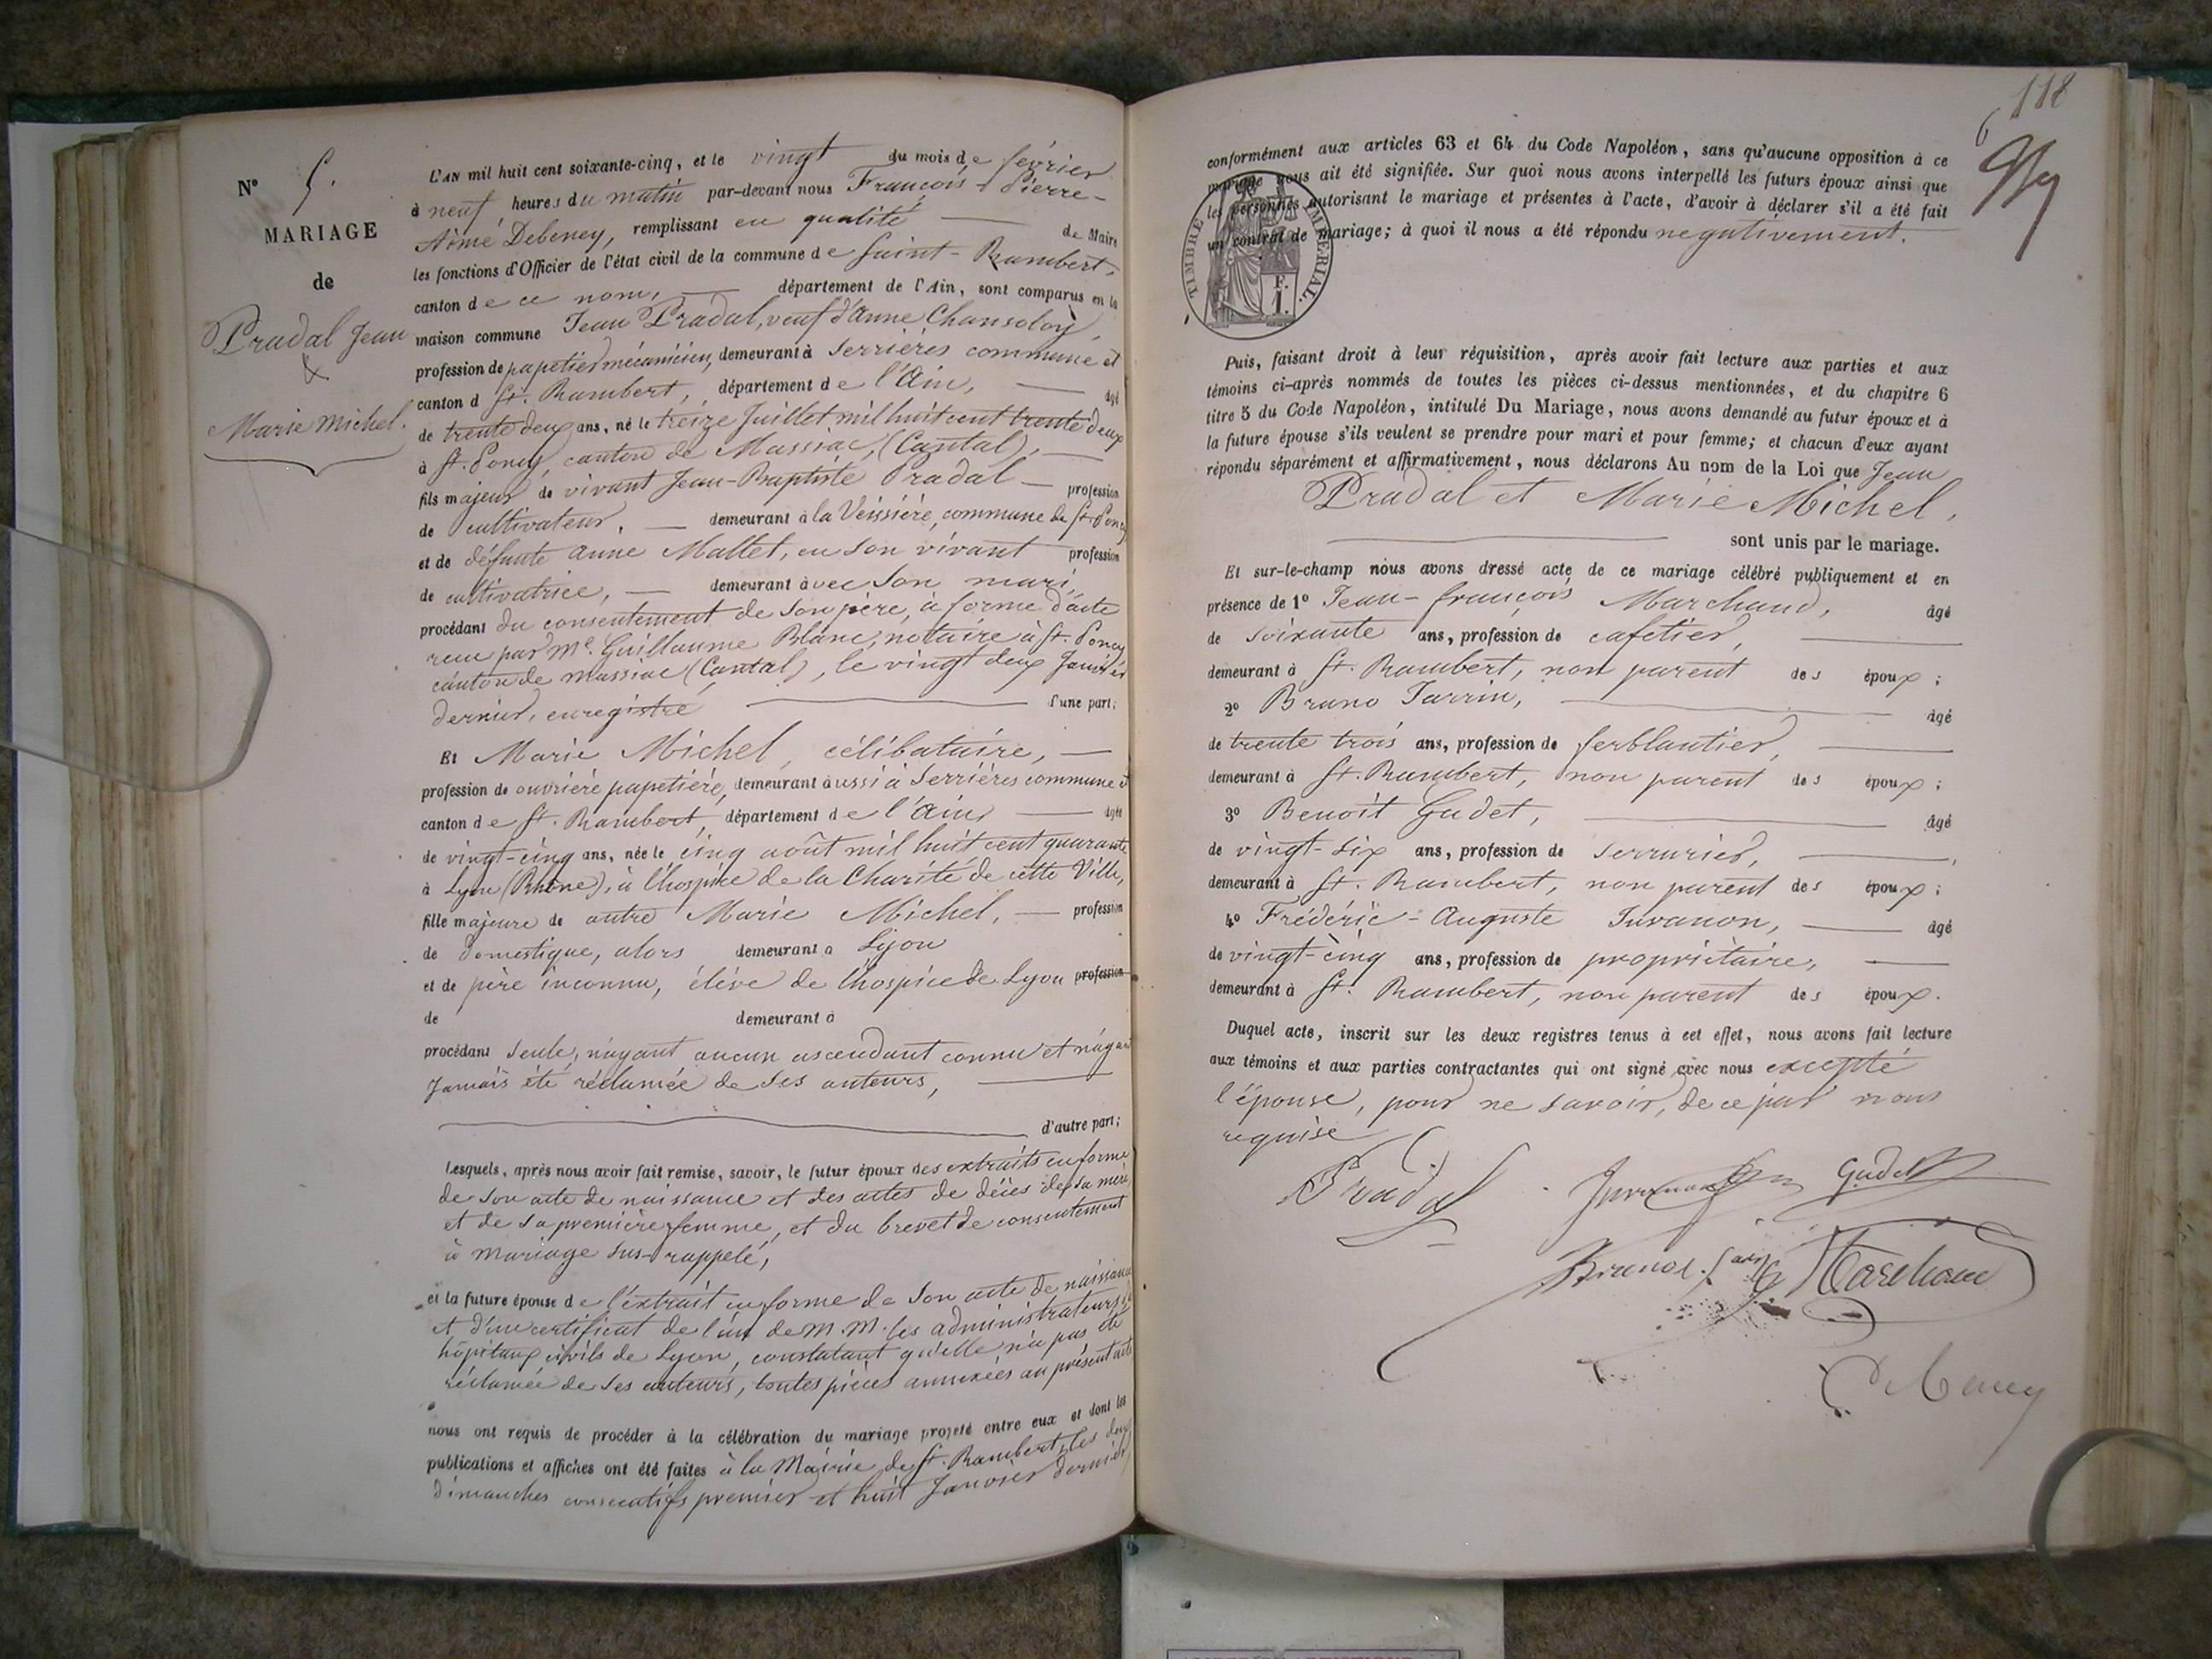 N° 5.
MARIAGE
de
Pradal Jean
&
Marie Michel.
L'AN mil huit cent soixante-cinq, et le vingt du mois de février
à neuf heures du matin par-devant nous François-Pierre-
Aimé Debeney, remplissant en qualité de Maire
les fonctions d'Officier de l'état civil de la commune de Saint-Rambert,
canton de ce nom, département de l'Ain, sont comparus en la
maison commune Jean Pradal, veuf d'Anne Chansoloy
profession de papetier mécanicien, demeurant à Serrières commune et
canton d St. Rambert, département de l'Ain, âgé
de trente deux ans, né le treize Juillet mil huit cent trente deux
à St. Poncy, canton de Massiac, (Cantal),
fils majeur de vivant Jean-Baptiste Pradal profession
de cultivateur, demeurant à la Veissière, commune de St. Poncy
et de défunte Anne Mallet, en son vivant profession
de cultivatrice, demeurant avec son mari,
procédant du consentement de son père, à forme d'acte
reçu par Me. Guillaume Blanc, notaire à St. Poncy
canton de Massiac (Cantal), le vingt deux Janvier
dernier, enregistré d'une part;
Et Marie Michel, célibataire,
profession de ouvrière papetière, demeurant aussi à Serrières commune et
canton de St. Rambert, département de l'Ain, âgée
de vingt-cinq ans, née le cinq août mil huit cent quarante
à Lyon (Rhône), à l'hospice de la Charité de cette Ville,
fille majeure de autre Marie Michel, profession
de domestique, alors demeurant à Lyon
et de père inconnu, élève de l'hospice de Lyon profession
de demeurant à
procédant seule, n'ayant aucun ascendant connu et n'ayant
Jamais été réclamée de ses auteurs,
d'autre part;
Lesquels, après nous avoir fait remise, savoir, le futur époux des extraits en forme
de son acte de naissance et des actes de décès de sa mère
et de sa première femme, et du brevet de consentement
à mariage sus-rappelé,
et la future épouse de l'extrait en forme de son acte de naissance
et d'un certificat de l'un de M.M. les administrateurs des
hôpitaux civils de Lyon, constatant qu'elle n'a pas été
réclamée de ses auteurs, toutes pièces annexées au présent acte
nous ont requis de procéder à la célébration du mariage projeté entre eux et dont les
publications et affiches ont été faites à la Mairie de St. Rambert, les deux
dimanches consécutifs premier et huit Janvier dernier,
118
conformément aux articles 63 et 64 du Code Napoléon, sans qu'aucune opposition à ce
mariage nous ait été signifiée. Sur quoi nous avons interpellé les futurs époux ainsi que
les personnes autorisant le mariage et présentes à l'acte, d'avoir à déclarer s'il a été fait
un contrat de mariage; à quoi il nous a été répondu négativement.
TIMBRE IMPÉRIAL.
1 F.
Puis, faisant droit à leur réquisition, après avoir fait lecture aux parties et aux
témoins ci-après nommés de toutes les pièces ci-dessus mentionnées, et du chapitre 6
titre 5 du Code Napoléon, intitulé Du Mariage, nous avons demandé au futur époux et à
la future épouse s'ils veulent se prendre pour mari et pour femme; et chacun d'eux ayant
répondu séparément et affirmativement, nous déclarons Au nom de la Loi que Jean
Pradal et Marie Michel,
sont unis par le mariage.
Et sur-le-champ nous avons dressé acte de ce mariage célébré publiquement et en
présence de 1° Jean-François Marchand, âgé
de soixante ans, profession de cafetier,
demeurant à St. Rambert, non parent des époux;
2° Bruno Jarrin, âgé
de trente trois ans, profession de ferblantier,
demeurant à St. Rambert, non parent des époux;
3° Benoit Gudet, âgé
de vingt-six ans, profession de serrurier,
demeurant à St. Rambert, non parent des époux;
4° Frédéric-Auguste Juvanon, âgé
de vingt-cinq ans, profession de propriétaire,
demeurant à St. Rambert, non parent des époux.
Duquel acte, inscrit sur les deux registres tenus à cet effet, nous avons fait lecture
aux témoins et aux parties contractantes qui ont signé avec nous excepté
l'épouse, pour ne savoir, de ce par nous
requise
Pradal Juvanon Gudet
Marchand
Debeney